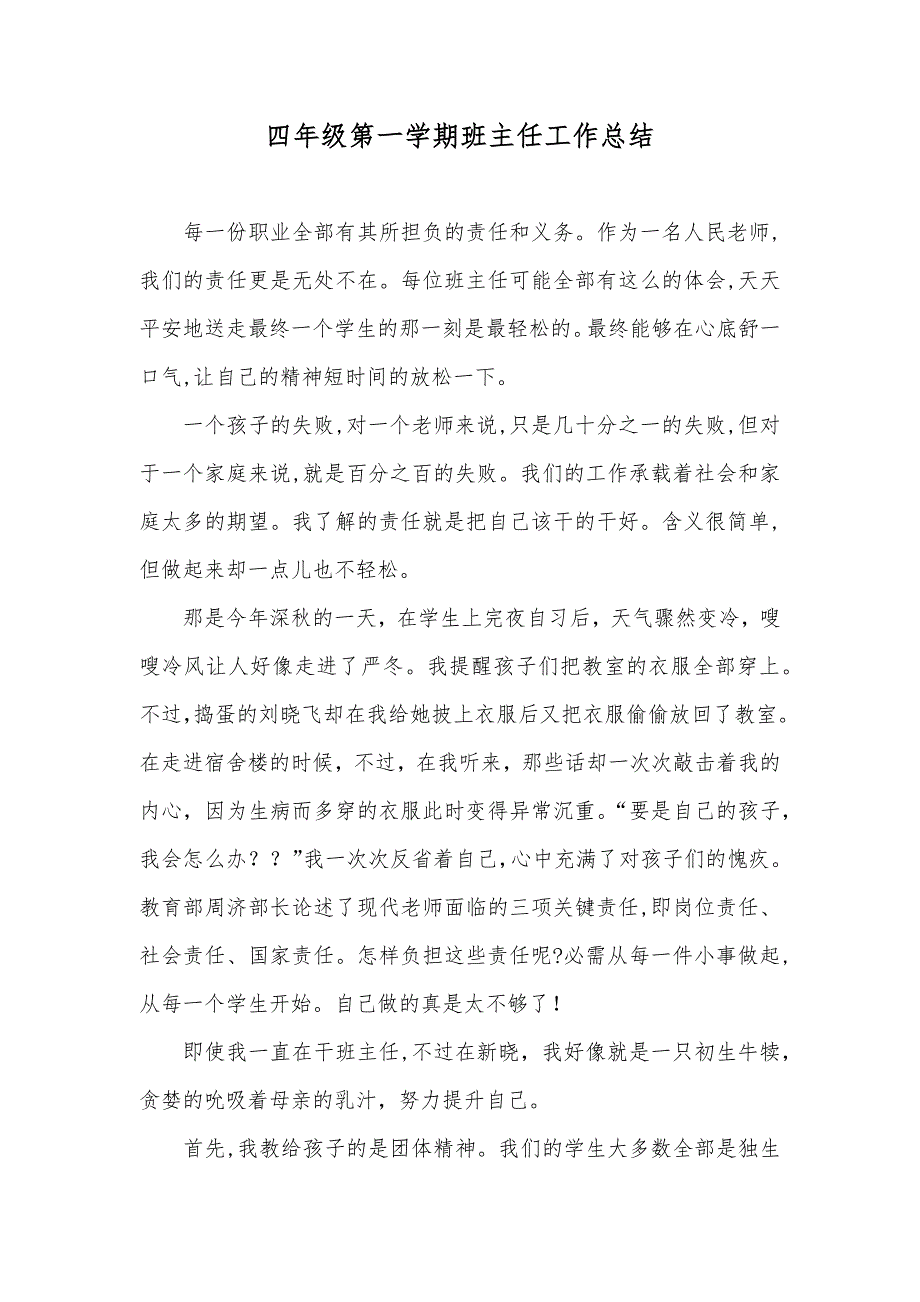 四年级第一学期班主任工作总结
每一份职业全部有其所担负的责任和义务。作为一名人民老师,
我们的责任更是无处不在。每位班主任可能全部有这么的体会,天天
平安地送走最终一个学生的那一刻是最轻松的。最终能够在心底舒一
口气,让自己的精神短时间的放松一下。
一个孩子的失败,对一个老师来说,只是几十分之一的失败,但对
于一个家庭来说,就是百分之百的失败。我们的工作承载着社会和家
庭太多的期望。我了解的责任就是把自己该干的干好。含义很简单,
但做起来却一点儿也不轻松。
那是今年深秋的一天，在学生上完夜自习后，天气骤然变冷，嗖
嗖冷风让人好像走进了严冬。我提醒孩子们把教室的衣服全部穿上。
不过,捣蛋的刘晓飞却在我给她披上衣服后又把衣服偷偷放回了教室。
在走进宿舍楼的时候，不过，在我听来，那些话却一次次敲击着我的
内心，因为生病而多穿的衣服此时变得异常沉重。“要是自己的孩子，
我会怎么办？？”我一次次反省着自己,心中充满了对孩子们的愧疚。
教育部周济部长论述了现代老师面临的三项关键责任,即岗位责任、
社会责任、国家责任。怎样负担这些责任呢?必需从每一件小事做起,
从每一个学生开始。自己做的真是太不够了!
即使我一直在干班主任,不过在新晓，我好像就是一只初生牛犊，
贪婪的吮吸着母亲的乳汁，努力提升自己。
首先,我教给孩子的是团体精神。我们的学生大多数全部是独生